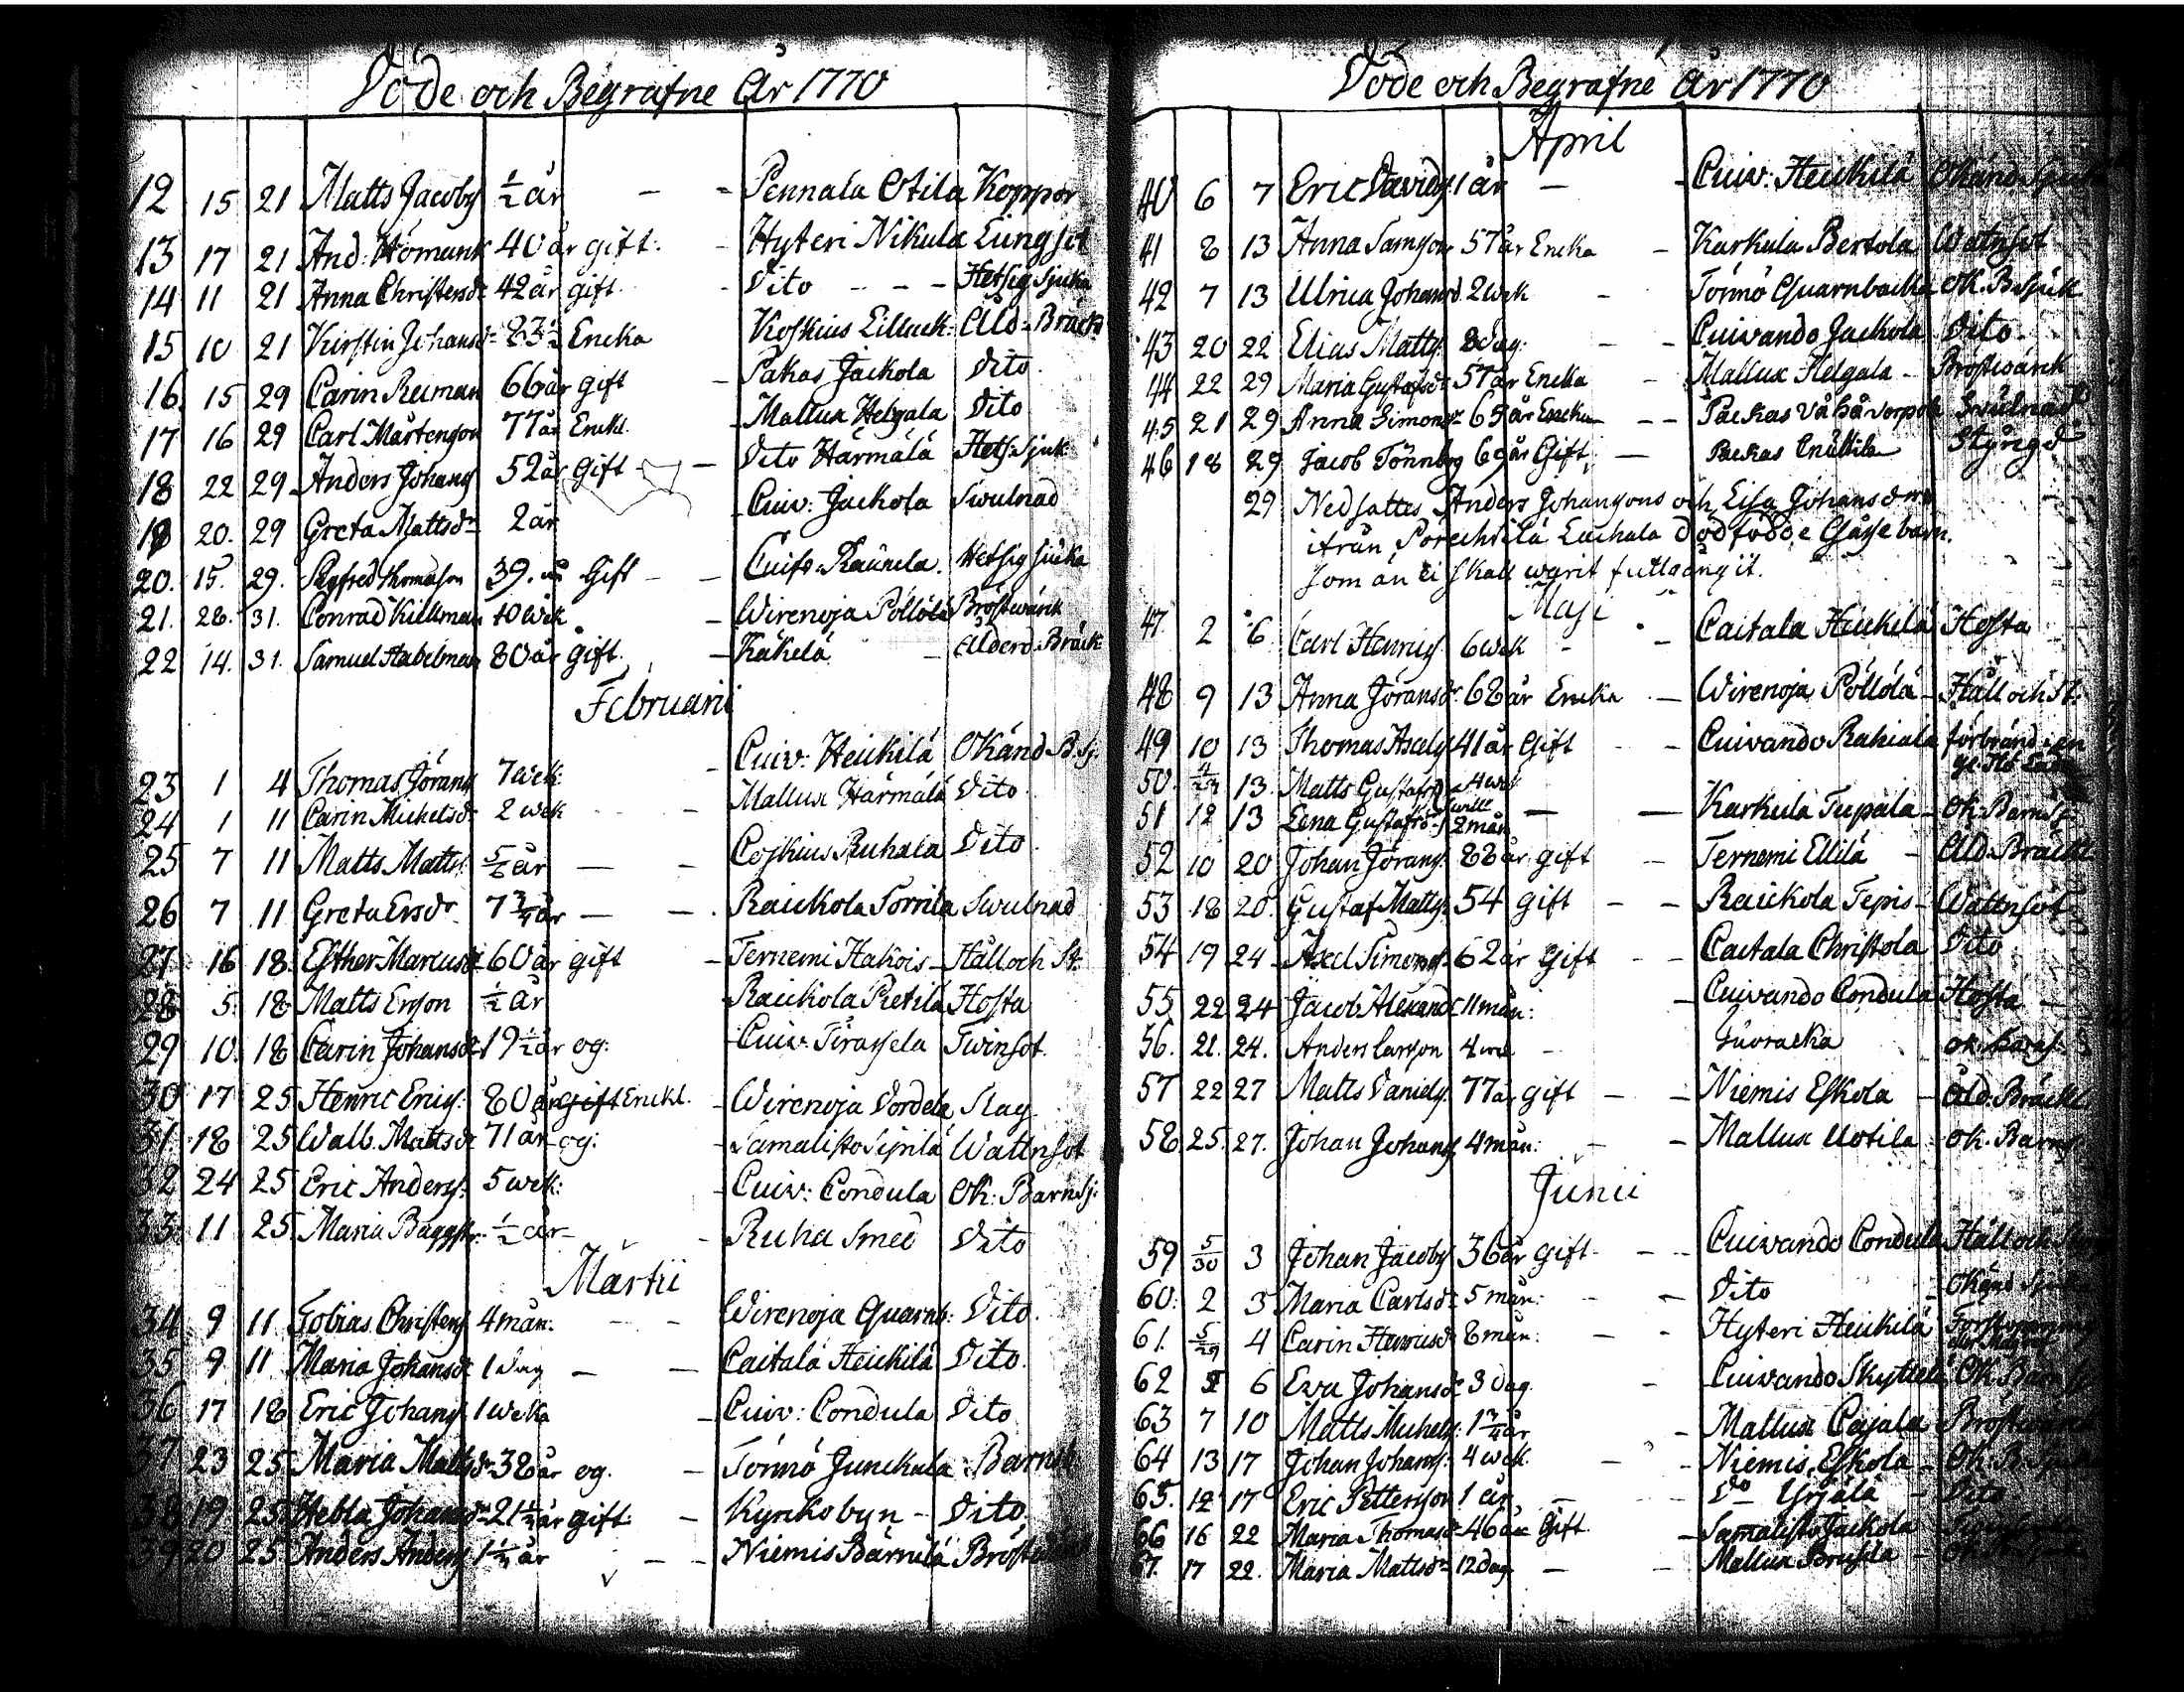 Döde och Begrafne År 1770
12 15 21 Matts Jacobs ½ år - - Pennala Otila Koppor
13 17 21 And: Homank 40 år gift: - Hyteri Nikula Lungsot
14 11 21 Anna Christersdr 42 år gift - Dito - - - Hetsig Sjuka
15 10 21 Kirstin Johansdr 83½ Encka Koskius Lilluck: Åld: Bräck
16. 15 29 Carin Reiman 66 år gift - Pakas Jackola Dito.
17 16 29 Carl Mårtenson 77 år Enckl. - Mallux Helgala Dito
18 22 29 Anders Johans 52 år Gift - Dito Härmälä Hets: Sjuk:
19 20. 29 Greta Mattsdr 2 år - Cuiv: Jackola Swulnad
20. 15. 29. Sigfred Thomason 39. år Gift - - Cuif: Raunela. Hetsig Sjuka
21. 28. 31. Conrad Killman 10 wek - Wirenoja Pöllölä Bröstwärck
22 14. 31. Samuel Habelman 80 år gift. - Käkelä - Ålderd. Bräck
Februarii
23 1 4 Thomas Jörans 7 wek: - Cuiv: Heickilä Okänd B. Sj.
24 1 11 Carin Michelsdr 2 wek - Mallux Härmälä Dito
25 7 11 Matts Matts: 5/2 år - - Coskius Ruhala Dito
26 7 11 Greta Ersdr 7¾ år - - Raickola Sorrila Swulnad
27 16 18 Esther Marcusdr 60 år gift - Ternemi Hakois - Håll och St:
28 5. 18 Matts Erson ½ år Raickola Pietilä Hosta
29 10. 18 Carin Johansdr 19½ år og: Cuiv: Tirassela Twinsot.
30 17 25 Henric Erics: 80 år gift Enckl. - Wirenoja Vordela Slag
31. 18 25 Walb. Mattsdr 71 år og: - Samalisto Sipilä Wattnsot
32 24 25 Eric Anders: 5 wek: - Cuiv: Condula Ok: Barnsj.
33. 11 25. Maria Baggstr: ½ år - - Ruha Smed Dito
Martii
34 9 11 Tobias Christers 4 mån. - - Wirenoja Quarnb: Dito.
35 9 11 Maria Johansdr 1 dag - - Caitala Heickilä Dito.
36 17 18 Eric Johans 1 weka - Cuiv: Condula Dito
37 23 25 Maria Mattsdr 38 år og. - Tönnö Junckala Barns
38 19 25 Hebla Johansdr 21½ år gift: - Kyrkobyn - Dito
39 20 25 Anders Anders 1½ år - - Niemis Bärnilä
Döde och Begrafne År 1770
April
40 6 7 Eric Davids: 1 år - - Cuiv: Heickilä Okänd Sjuka
41 8 13 Anna Samsons 57 år Encka - Karkula Bertola Wattnsot
42 7 13 Ulrica Johansd. 2 wek - Tönnö Quarnbacka Ok. B. Sjuk
43 20 22 Elias Matts: 8 dag: - - Cuivando Jackola Dito
44 22 29 Maria Gustafsdr 57 år Encka - Mallux Helgala - Bröstwärck
45 21 29 Anna Simonsdr 65 år Encka - - Packas Swulnad
46 18 29 Jacob Tönnberg 69 år Gift: - Packas Styng
29 Nedsattes Anders Johansons och Lisa Johansdrs
ifrån Lachala dödfödde Gåsse barn.
som än ei skall warit fullgångit.
Maji
47. 2 6. Carl Henrics 6 wek - - Caitala Heickilä Hosta
48 9 13 Anna Joransdr 68 år Encka - Wirenoja Pöllölä - Håll och St:
49 10 13 Thomas Axels 41 år Gift - - Cuivando Rahiala förbränd i en
50. 4/29 13. Matts Gustafss 4 wek
51 12 13 Lena Gustafsd: 2 mån - - Karkula Tupala - Ok: Barnsj:
52 10 20 Johan Jörans: 88 år gift - Ternemi Ellilä - Åld: Bräckl
53 18 20. Gustaf Matts: 54 gift - - Raickola Tepis - Wattnsot
54 19 24 Axel Simons: 62 år Gift - - Caitala Christola Dito
55 22 24 Jacob Alexand: 11 mån: - Cuivando Condula Hosta -
56. 21. 24. Anders Larson 4 wek - Suoracka Ok: Barnsj.
57 22 27 Matts Daniels: 77 år gift - - Niemis Eskola - Åld: Bräckl
58 25. 27. Johan Johans 4 mån: - - Mallux Uotila Ok. Barns:
Junii
59 5/30 3 Johan Jacobs 36 år gift - - - Cuivando Condula Håll och
60: 2 3 Maria Carlsdr 5 mån: - - Dito - Okänd Sjuka
61. 5/29 4 Carin Henricsdr 8 mån: - - Hyteri Heickilä
62 6 Eva Johansdr 3 dag. - Cuivando Skyttelä Ok. Barnsj
63 7 10 Matts Michels: 1¾ år - Mallux Cajala Bröstwärck
64 13 17 Johan Johans: 4 wek. - - Niemis Eskola - Ok: B. Sjuka
65. 12 17 Eric Petterson 1 år - - Do Yrjälä - Dito
66 16 22 Maria Thomasdr 46 år Gift - Samalisto Jackola
67. 17 22. Maria Mattsdr 12 dag - - Mallux Brusila -